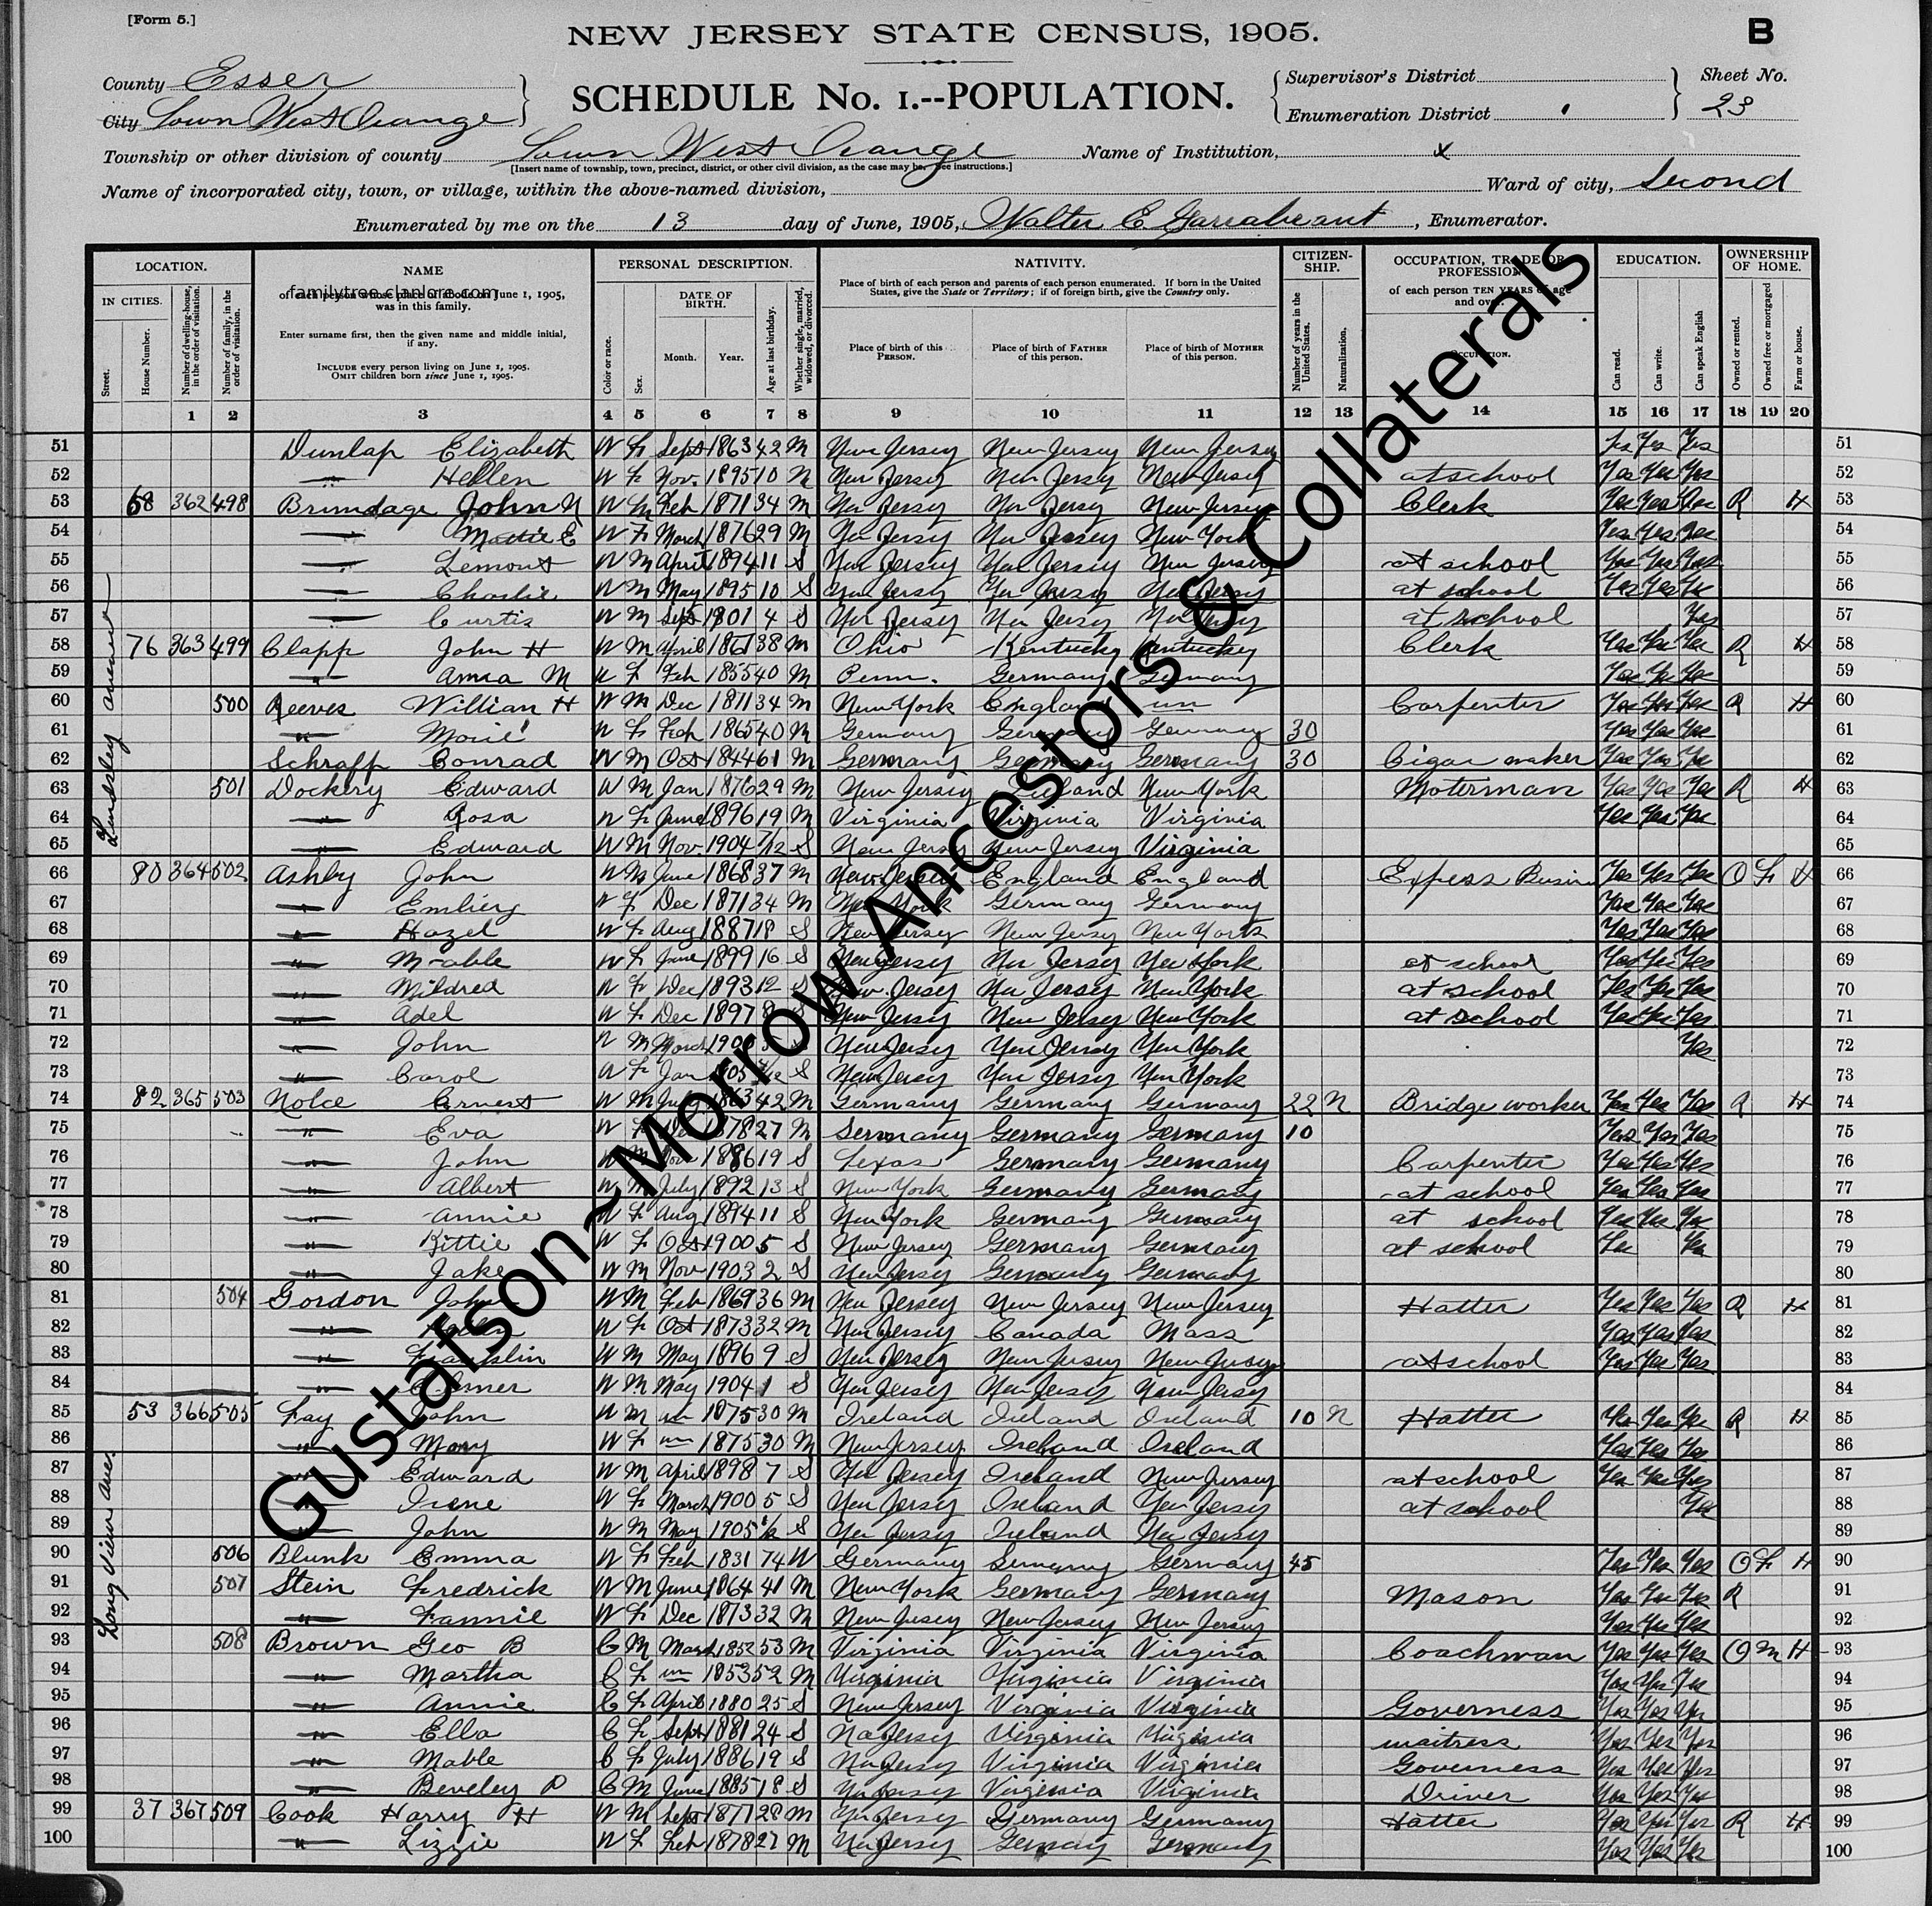 [Form 5.]
B
NEW JERSEY STATE CENSUS, 1905.
SCHEDULE No. 1.--POPULATION.
County Essex
City Town West Orange
Supervisor's District
Enumeration District
Sheet No. 23
Township or other division of county Town West Orange Name of Institution, x
[Insert name of township, town, precinct, district, or other civil division, as the case may be. See instructions.]
Name of incorporated city, town, or village, within the above-named division, Ward of city, Second
Enumerated by me on the 13 day of June, 1905, Walter E Garrabrant, Enumerator.
LOCATION. NAME PERSONAL DESCRIPTION. NATIVITY. CITIZENSHIP. OCCUPATION, TRADE OR PROFESSION EDUCATION. OWNERSHIP OF HOME.
IN CITIES. Street. House Number. Number of dwelling-house, in the order of visitation. Number of family, in the order of visitation.
of each person whose place of abode on June 1, 1905, was in this family.
familytree.clanlore.com
Enter surname first, then the given name and middle initial, if any.
INCLUDE every person living on June 1, 1905.
OMIT children born since June 1, 1905.
Color or race. Sex. DATE OF BIRTH. Month. Year. Age at last birthday. Whether single, married, widowed, or divorced.
Place of birth of each person and parents of each person enumerated. If born in the United States, give the State or Territory; if of foreign birth, give the Country only.
Place of birth of this PERSON. Place of birth of FATHER of this person. Place of birth of MOTHER of this person.
Number of years in the United States. Naturalization.
of each person TEN YEARS of age and over. OCCUPATION.
Can read. Can write. Can speak English Owned or rented. Owned free or mortgaged Farm or house.
1 2 3 4 5 6 7 8 9 10 11 12 13 14 15 16 17 18 19 20
51 Dunlap Elizabeth W F Sept 1863 42 M New Jersey New Jersey New Jersey Yes Yes Yes 51
52 " Hellen W F Nov. 1895 10 New Jersey New Jersey New Jersey at school Yes Yes Yes 52
53 68 362 498 Brundage John N W M Feb 1871 34 M New Jersey New Jersey New Jersey Clerk Yes Yes Yes R H 53
54 " Mattie E W F March 1876 29 M New Jersey New Jersey New York Yes Yes Yes 54
55 " Lemont W M April 1894 11 S New Jersey New Jersey New Jersey at school Yes Yes Yes 55
56 " Charlie W M May 1895 10 S New Jersey New Jersey New Jersey at school Yes Yes Yes 56
57 " Curtis W M Sept 1901 4 S New Jersey New Jersey New Jersey at school Yes 57
58 76 363 499 Clapp John H W M April 1867 38 M Ohio Kentucky Kentucky Clerk Yes Yes Yes R H 58
59 " Anna M W F Feb 1855 40 M Penn. Germany Germany Yes Yes Yes 59
60 500 Reeves William H W M Dec 1871 34 M New York England un Carpenter Yes Yes Yes R H 60
61 " W F Feb 1865 40 M Germany Germany Germany 30 Yes Yes Yes 61
62 Schrapp Conrad W M Oct 1844 61 M Germany Germany Germany 30 Cigar maker Yes Yes Yes 62
63 501 Dockery Edward W M Jan 1876 29 M New Jersey Ireland New York Moterman Yes Yes Yes R H 63
64 " Rosa W F June 1896 19 M Virginia Virginia Virginia Yes Yes Yes 64
65 " Edward W M Nov. 1904 7/12 S New Jersey New Jersey Virginia 65
66 80 364 502 Ashby John W M June 1868 37 M New Jersey England England Expess Busin Yes Yes Yes O F H 66
67 " W F Dec 1871 34 M New York Germany Germany Yes Yes Yes 67
68 " Hazel W F Aug 1887 18 S New Jersey New Jersey New York Yes Yes Yes 68
69 " Mable W F June 1899 16 S New Jersey New Jersey New York at school Yes Yes Yes 69
70 " Mildred W F Dec 1893 12 S New Jersey New Jersey New York at school Yes Yes Yes 70
71 " Adel W F Dec 1897 8 S New Jersey New Jersey New York at school Yes Yes Yes 71
72 " John W M March 1900 New Jersey New Jersey New York Yes 72
73 " Carol W F Jan 1905 S New Jersey New Jersey New York 73
74 82 365 503 Nolce Ernest W M July 1863 42 M Germany Germany Germany 22 N Bridge worker Yes Yes Yes R H 74
75 " Eva W F 1878 27 M Germany Germany Germany 10 Yes Yes Yes 75
76 " John W M Nov 1886 19 S Texas Germany Germany Carpenter Yes Yes Yes 76
77 " Albert W M July 1892 13 S New York Germany Germany at school Yes Yes Yes 77
78 " Annie W F Aug 1894 11 S New York Germany Germany at school Yes Yes Yes 78
79 " Kittie W F Oct 1900 5 S New Jersey Germany Germany at school Yes Yes 79
80 " Jake W M Nov 1903 2 S New Jersey Germany Germany 80
81 504 Gordon John W M Feb 1869 36 M New Jersey New Jersey New Jersey Hatter Yes Yes Yes R H 81
82 " W F Oct 1873 32 M New Jersey Canada Mass Yes Yes Yes 82
83 " Franklin W M May 1896 9 S New Jersey New Jersey New Jersey at school Yes Yes Yes 83
84 " Elmer W M May 1904 1 S New Jersey New Jersey New Jersey 84
85 53 366 505 Fay John W M un 1875 30 M Ireland Ireland Ireland 10 N Hatter Yes Yes Yes R H 85
86 " Mary W F un 1875 30 M New Jersey Ireland Ireland Yes Yes Yes 86
87 " Edward W M April 1898 7 S New Jersey Ireland New Jersey at school Yes Yes Yes 87
88 " Irene W F March 1900 5 S New Jersey Ireland New Jersey at school Yes 88
89 " John W M May 1905 S New Jersey Ireland New Jersey 89
90 506 Blunk Emma W F Feb 1831 74 W Germany Germany Germany 45 Yes Yes Yes O F H 90
91 507 Stein Fredrick W M June 1864 41 M New York Germany Germany Mason Yes Yes Yes R 91
92 " Fannie W F Dec 1873 32 M New Jersey New Jersey New Jersey Yes Yes Yes 92
93 508 Brown Geo B C M March 1852 53 M Virginia Virginia Virginia Coachman Yes Yes Yes O M H 93
94 " Martha C F un 1853 52 M Virginia Virginia Virginia Yes Yes Yes 94
95 " Annie C F April 1880 25 S New Jersey Virginia Virginia Governess Yes Yes Yes 95
96 " Ella C F Sept 1881 24 S New Jersey Virginia Virginia waitress Yes Yes Yes 96
97 " Mable C F July 1886 19 S New Jersey Virginia Virginia Governess Yes Yes Yes 97
98 " Beveley P C M June 1885 18 S New Jersey Virginia Virginia Driver Yes Yes Yes 98
99 37 367 509 Cook Harry H W M Sept 1877 28 M New Jersey Germany Germany Hatter Yes Yes Yes R H 99
100 " Lizzie W F Feb 1878 27 M New Jersey Germany Germany Yes Yes Yes 100
Lindsley avenue
Long View Ave.
Gustafson~Morrow Ancestors & Collaterals